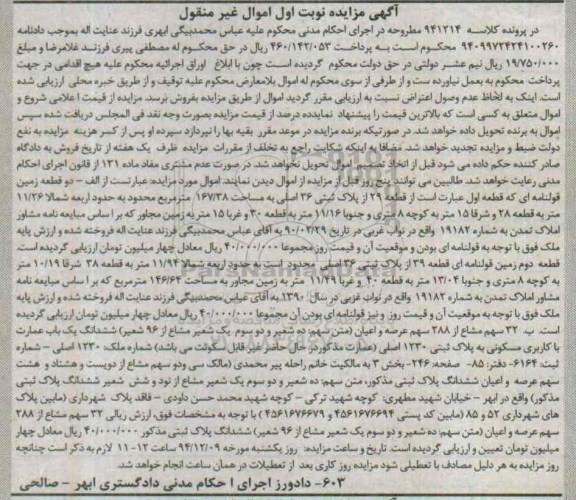 آگهی مزایده نوبت اول اموال غیر منقول
در پرونده کلاسه ۹۴۱۲۱۴ مطروحه در اجرای احکام مدنی محکوم علیه عباس محمدبیگی ابهری فرزند عنایت اله بموجب دادنامه
۹۴۰۹۹۷۲۴۲۴۱۰۰۲۶۰ محکوم است به پرداخت ۴۶۰/۱۴۲/۰۵۳ ریال در حق محکوم له مصطفی پیری فرزند غلامرضا و مبلغ
۱۹/۷۵۰/۰۰۰ ریال نیم عشر دولتی در حق دولت محکوم گردیده است چون با ابلاغ اوراق اجرائیه محکوم علیه هیچ اقدامی در جهت
پرداخت محکوم به بعمل نیاورده ست و از طرفی از سوی محکوم له اموال بلامعارض محکوم علیه توقیف و از طریق خبره محلی ارزیابی شده
است. اینک به لحاظ عدم وصول اعتراض نسبت به ارزیابی مقرر گردید اموال از طریق مزایده بفروش برسد. مزایده از قیمت اعلامی شروع و
اموال متعلق به کسی است که بالاترین قیمت را پیشنهاد نمایدده درصد از قیمت مزایده بصورت وجه نقد فی المجلس دریافت شده سپس
اموال به برنده تحویل داده خواهد شد. در صورتیکه برنده مزایده در موعد مقرر بقیه بها را نپردازد سپرده او پس از کسر هزینه مزایده به نفع
دولت ضبط و مزایده تجدید خواهد شد. مضافا به اینکه شکایت راجع به تخلف از مقررات مزایده ظرف یک هفته از تاریخ فروش به دادگاه
صادر کننده حکم داده می شود قبل از اتخاذ تصمیم اموال تحویل نخواهد شد. در صورت عدم مشتری مفاد ماده ۱۳۱ از قانون اجرای احکام
مدنی رعایت خواهد شد. طالبین می توانند پنج روز قبل از مزایده از اموال دیدن نمایند. اموال مورد مزایده: عبارتست از الف - دو قطعه زمین
قولنامه ای که قطعه اول عبارت است از قطعه ۲۹ از پلاک ثبتی ۳۶ اصلی به مساحت ۱۶۷/۳۸ مترمربع محدود به حدود اربعه شمالا ۱۱/۲۶
متر به قطعه ۲۸ و شرقا ۱۵ متر به کوچه ۸ متری و جنوبا ۱۱/۱۶ متر به قطعه ۳۰ و غربا ۱۵ متر به زمین مجاور که بر ا ساس مبایعه نامه مشاور
املاک تمدن به شماره ۱۹۱۸۲ واقع در نواب غربی در تاریخ ۹۰/۰۲/۲۹ به آقای عباس محمدبیگی فرزند عنایت اله فروخته شده و ارزش پایه
ملک فوق با توجه به قولنامه ای بودن و موقعیت آن و قیمت روز مجموعا ۴۰/۰۰۰/۰۰۰ ریال معادل چهار میلیون تومان ارزیابی گردیده است.
قطعه دوم زمین قولنامه ای قطعه ۳۹ از پلاک ثبتی ۳۶ اصلی محدود است به حدود اربعه شمالا ۱۱/۹۴ متر به قطعه ۳۸ شرقا ۱۰/۱۹ متر
به کوچه ۸ متری و جنوبا ۱۳/۰۴ متر به قطعه ۴۰ و غربا ۱۱/۴۹ متر به زمین مجاور به مساحت ۱۴۶/۶۴ مترمربع که بر ا ساس مبایعه نامه
مشاور املاک تمدن به شماره ۱۹۱۸۲ واقع در نواب غربی در سال ۱۳۹۰ به آقای عباس محمدبیگی فرزند عنایت اله فروخته شده و ارزش پایه
ملک فوق با توجه به موقعیت آن و قیمت روز و نیز قولنامه ای بودن آن مجموعا ۴۰/۰۰۰/۰۰۰ ریال معادل چهار میلیون تومان ارزیابی گردیده
است. ب. ۳۲ سهم مشاع از ۲۸۸ سهم عرصه و اعیان (متن سهم: ده شعیر و دو سوم یک شعیر مشاع از ۹۶ شعیر) ششدانگ یک باب عمارت
با کاربری مسکونی به پلاک ثبتی ۱۲۳۰ اصلی (عمارت مذکور در حال حاضر غیر قابل سکونت می باشد) شماره ملک: ۱۲۳۰ اصلی - شماره
ثبت: ۶۱۶۴- دفتر: ۸۵- صفحه: ۲۴۶- بخش ۳ به مالکیت خانم راحله پیر محمدی (مالک سی ودو سهم مشاع از دویست و هشتاد و هشت
سهم عرصه و اعیان ششدانگ پلاک ثبتی مذکور، متن سهم: ده شعیر و دو سوم یک شعیر مشاع از نود و شش شعیر ششدانگ پلاک ثبتی
مذکور) واقع در ابهر - خیابان شهید مطهری: کوچه شهید ترکی - کوچه شهید محمد حسن داودی - فاقد پلاک شهرداری (مابین پلاک
های شهرداری ۵۲ و ۸۵ (مابین کد پستی ۴۵۶۱۶۷۶۶۹۴ و ۴۵۶۱۶۷۶۶۷۹) با توجه به مشخصات فوق، ارزش ریالی ۳۲ سهم مشاع از ۲۸۸
سهم عرصه و اعیان (متن سهم: ده شعیر و دو سوم یک شعیر مشاع از ۹۶ شعیر) ششدانگ پلاک ثبتی مذکور ۴۰/۰۰۰/۰۰۰ ریال معادل چهار
میلیون تومان تعیین و ارزیابی گردیده است. تاریخ و ساعت مزایده: روز یکشنبه مورخه ۹۴/۱۲/۰۹ ساعت ۱۲-۱۱ لازم به ذکر است چنانچه
روز مزایده به هر دلیل مصادف با تعطیلی شود مزایده روز کاری بعد از تعطیلات در همان ساعت انجام خواهد شد.
۶۰۳- دادورز اجرای ا حکام مدنی دادگستری ابهر - صالحی